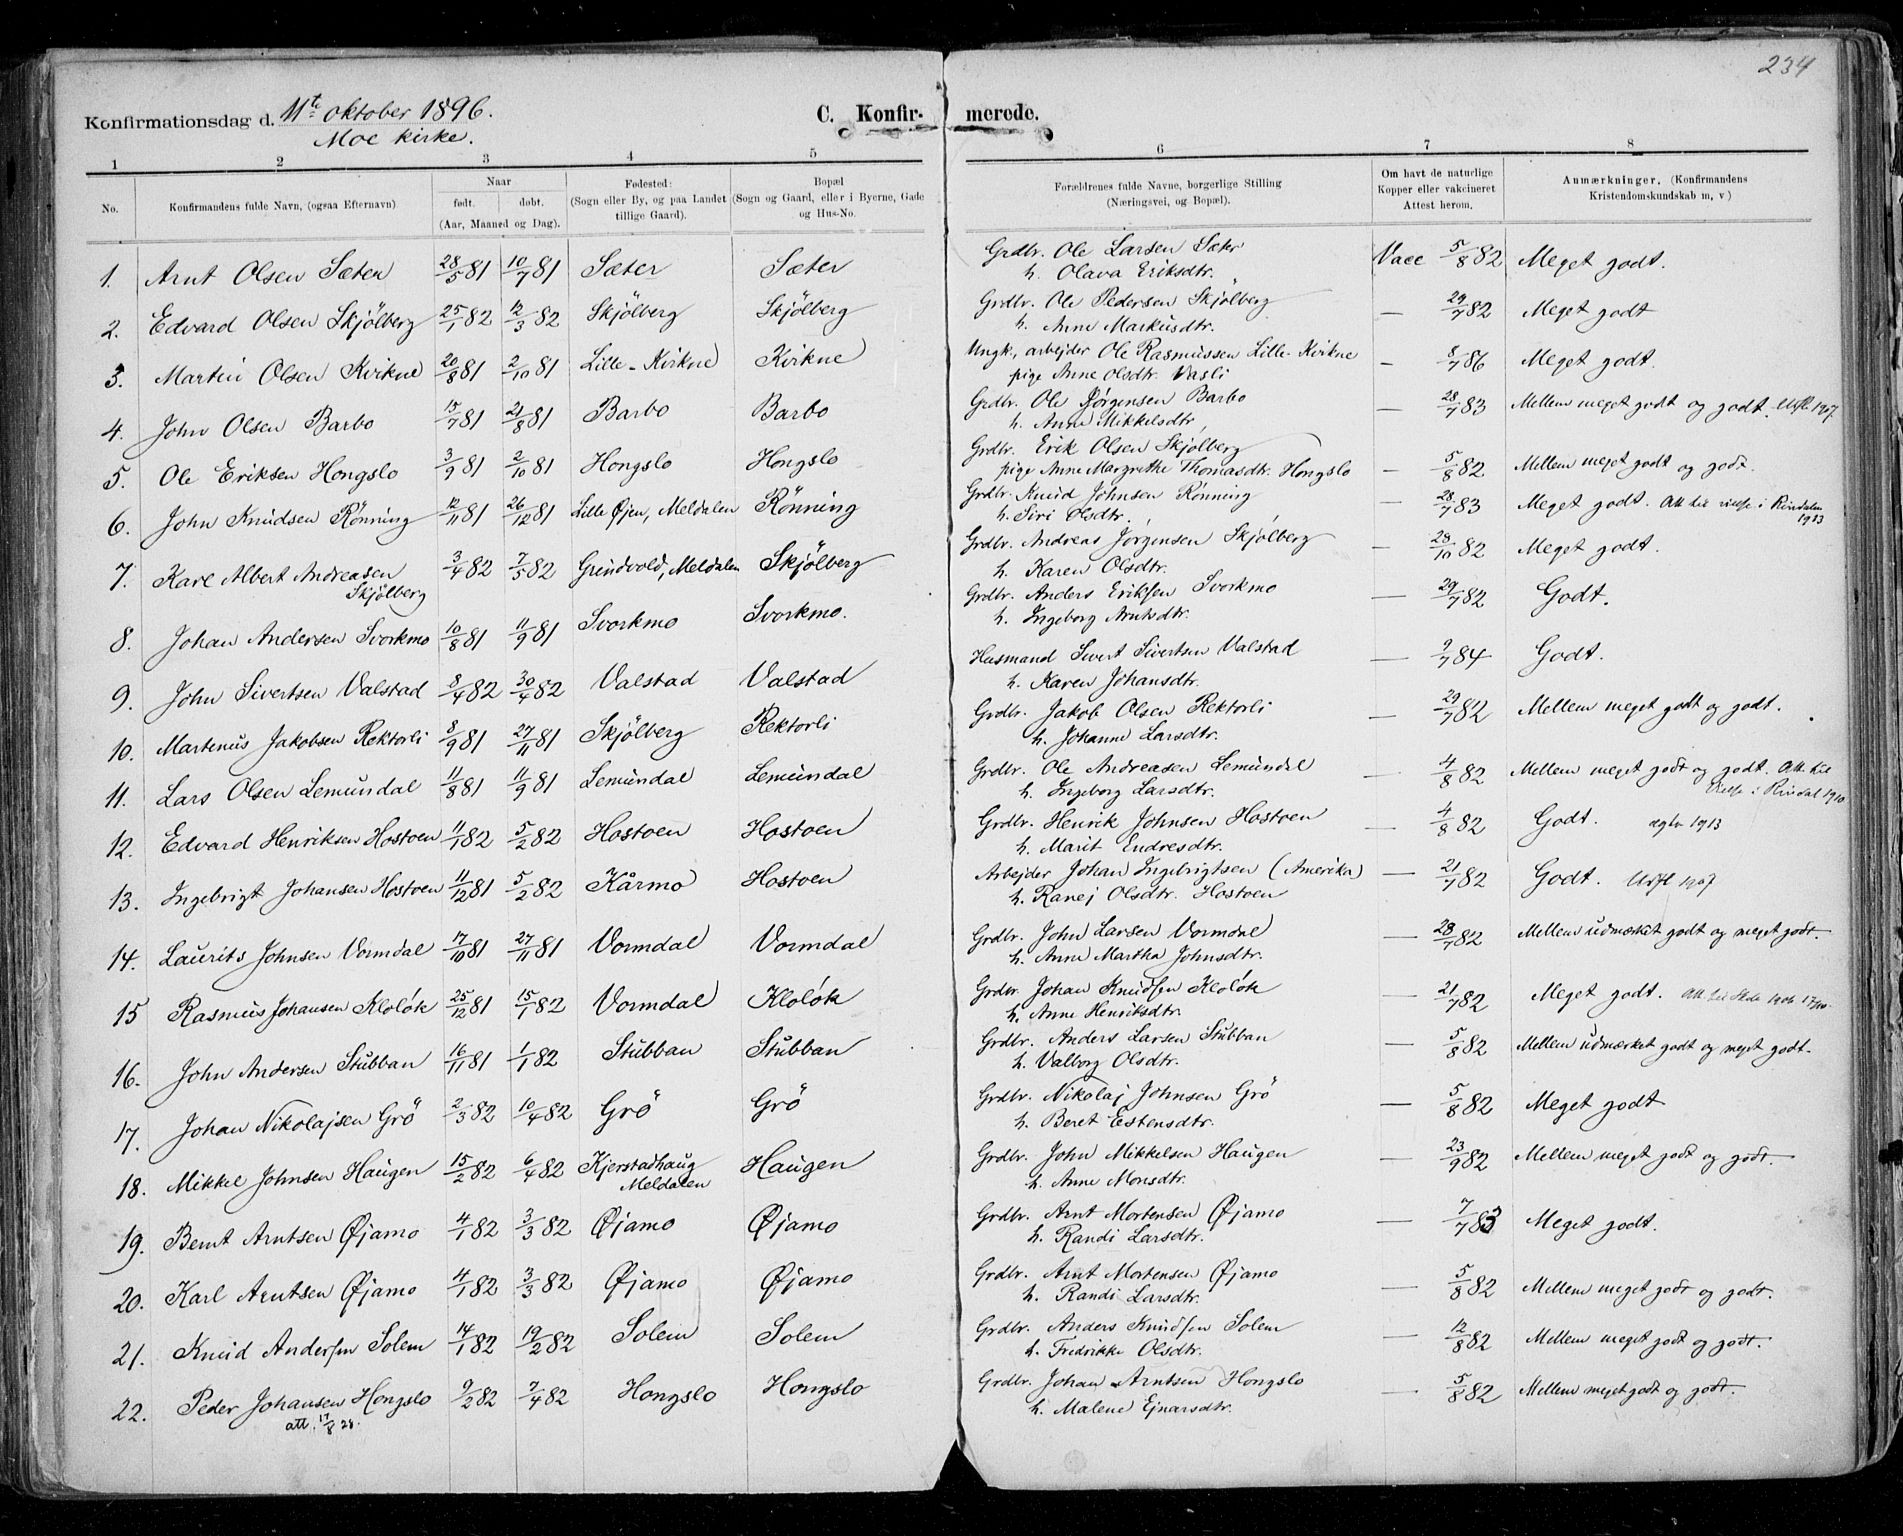 234
Konfirmationsdag d. 11te oktober 1896. C. Konfirmerede.
Moe kirke.
1 2 3 4 5 6 7 8
No. Konfirmandens fulde Navn, (ogsaa Efternavn) Naar født. døbt. (Aar, Maaned og Dag). Fødested: (Sogn eller By, og paa Landet tillige Gaard). Bopæl (Sogn og Gaard, eller i Byerne, Gade og Hus-No. Forældrenes fulde Navne, borgerlige Stilling (Næringsvei, og Bopæl). Om havt de naturlige Kopper eller vakcineret Attest herom. Anmærkninger, (Konfirmandens Kristendomskundskab m, v)
1. Arnt Olsen Sæter 28/5 81 10/7 81 Sæter Sæter Grdbr. Ole Larsen Sæter Vacc 5/8 82 Meget godt.
h. Olava Eriksdtr.
2. Edvard Olsen Skjölberg 25/1 82 12/3 82 Skjölberg Skjölberg Grdbr. Ole Pedersen Skjölberg — 29/7 82 Meget godt
h. Anne Markusdtr.
3. Martin Olsen Kvikne 20/8 81 2/10 81 Lille-Kvikne Kvikne Ungk., arbejder Ole Rasmussen Lille-Kvikne — 8/7 86 Meget godt.
pige Anne Olsdtr. Vasli
4. John Olsen Barbo 15/7 81 21/8 81 Barbo Barbo Grdbr. Ole Jørgensen Barbo — 28/7 83 Mellem meget godt og godt. Utfl. 1907.
h. Anne Mikkelsdtr.
5. Ole Eriksen Hongslo 3/9 81 2/10 81 Hongslo Hongslo Grdbr. Erik Olsen Skjølberg — 5/8 82 Mellem meget godt og godt.
pige Anne Margrethe Thomasdtr. Hongslo
6. John Knudsen Rönning 12/11 81 26/12 81 Lille Øjen, Meldalen Rönning Grdbr. Knud Johnsen Rønning — 28/7 83 Meget godt. Att. til vielse i Rindalen 1913
h. Siri Olsdtr.
7. Karl Albert Andreasen Skjölberg 3/4 82 7/5 82 Grindvold, Meldalen Skjölberg Grdbr. Andreas Jørgensen Skjølberg — 28/10 82 Meget godt.
h. Karen Olsdtr.
8. Johan Andersen Svorkmo 10/8 81 11/9 81 Svorkmo Svorkmo. Grdbr. Anders Eriksen Svorkmo — 29/7 82 Godt.
h. Ingeborg Arntsdtr.
9. John Sivertsen Valstad 8/4 82 30/4 82 Valstad Valstad Husmand Sivert Sivertsen Valstad — 9/7 84 Godt.
h. Karen Johansdtr.
10. Martinus Jakobsen Rektorli 8/9 81 27/11 81 Skjölberg Rektorli Grdbr. Jakob Olsen Rektorli — 29/7 82 Mellem meget godt og godt.
h. Johanne Larsdtr.
11. Lars Olsen Lemundal 11/8 81 11/9 81 Lemundal Lemundal Grdbr. Ole Andreasen Lemundal — 4/8 82 Mellem meget godt og godt. Att. til vielse i Rindal 1910
h. Ingeborg Larsdtr.
12. Edvard Henriksen Hostoen 11/1 82 5/2 82 Hostoen Hostoen Grdbr. Henrik Johnsen Hostoen — 4/8 82 Godt. 1913
h. Marit Endresdtr.
13. Ingebrigt Johansen Hostoen 11/12 81 5/2 82 Kårmo Hostoen Arbejder Johan Ingebrigtsen (Amerika) — 21/7 82 Godt. Utfl 1907
h. Ranej Olsdtr. Hostoen
14. Laurits Johnsen Vormdal 17/10 81 27/11 81 Vormdal Vormdal Grdbr. John Larsen Vormdal — 28/7 82 Mellem udmærket godt og meget godt.
h. Anne Martha Johnsdtr.
15 Rasmus Johansen Kloløk 25/12 81 15/1 82 Vormdal Kloløk Grdbr. Johan Knudsen Kloløk — 21/7 82 Meget godt. Att. til
h. Anne Henriksdtr.
16. John Andersen Stubban 16/11 81 1/1 82 Stubban Stubban Grdbr. Anders Larsen Stubban — 5/8 82 Mellem udmærket godt og meget godt.
h. Valborg Olsdtr.
17. Johan Nikolajsen Grö 2/3 82 10/4 82 Grö Grö Grdbr. Nikolaj Johnsen Grö — 5/8 82 Meget godt
h. Beret Estensdtr.
18. Mikkel Johnsen Haugen 15/2 82 6/4 82 Kjerstadhaug Meldalen Haugen Grdbr. John Mikkelsen Haugen — 23/9 82 Mellem meget godt og godt.
h. Anne Monsdtr.
19. Bernt Arntsen Øjamo 4/1 82 3/3 82 Øjamo Øjamo Grdbr. Arnt Mortensen Øjamo — 7/7 83 Meget godt.
h. Randi Larsdtr.
20. Karl Arntsen Øjamo 4/1 82 3/3 82 Øjamo Øjamo Grdbr. Arnt Mortensen Øjamo — 5/8 82 Mellem meget godt og godt.
h. Randi Larsdtr.
21. Knud Andersen Solem 14/1 82 19/2 82 Solem Solem Grdbr. Anders Knudsen Solem — 12/8 82 Mellem meget godt og godt.
h. Fredrikke Olsdtr.
22. Peder Johansen Hongslo 9/2 82 7/4 82 Hongslo Hongslo Grdbr. Johan Arntsen Hongslo — 5/8 82 Mellem meget godt og godt.
att. 17/8 28. h. Malene Ejnarsdtr.